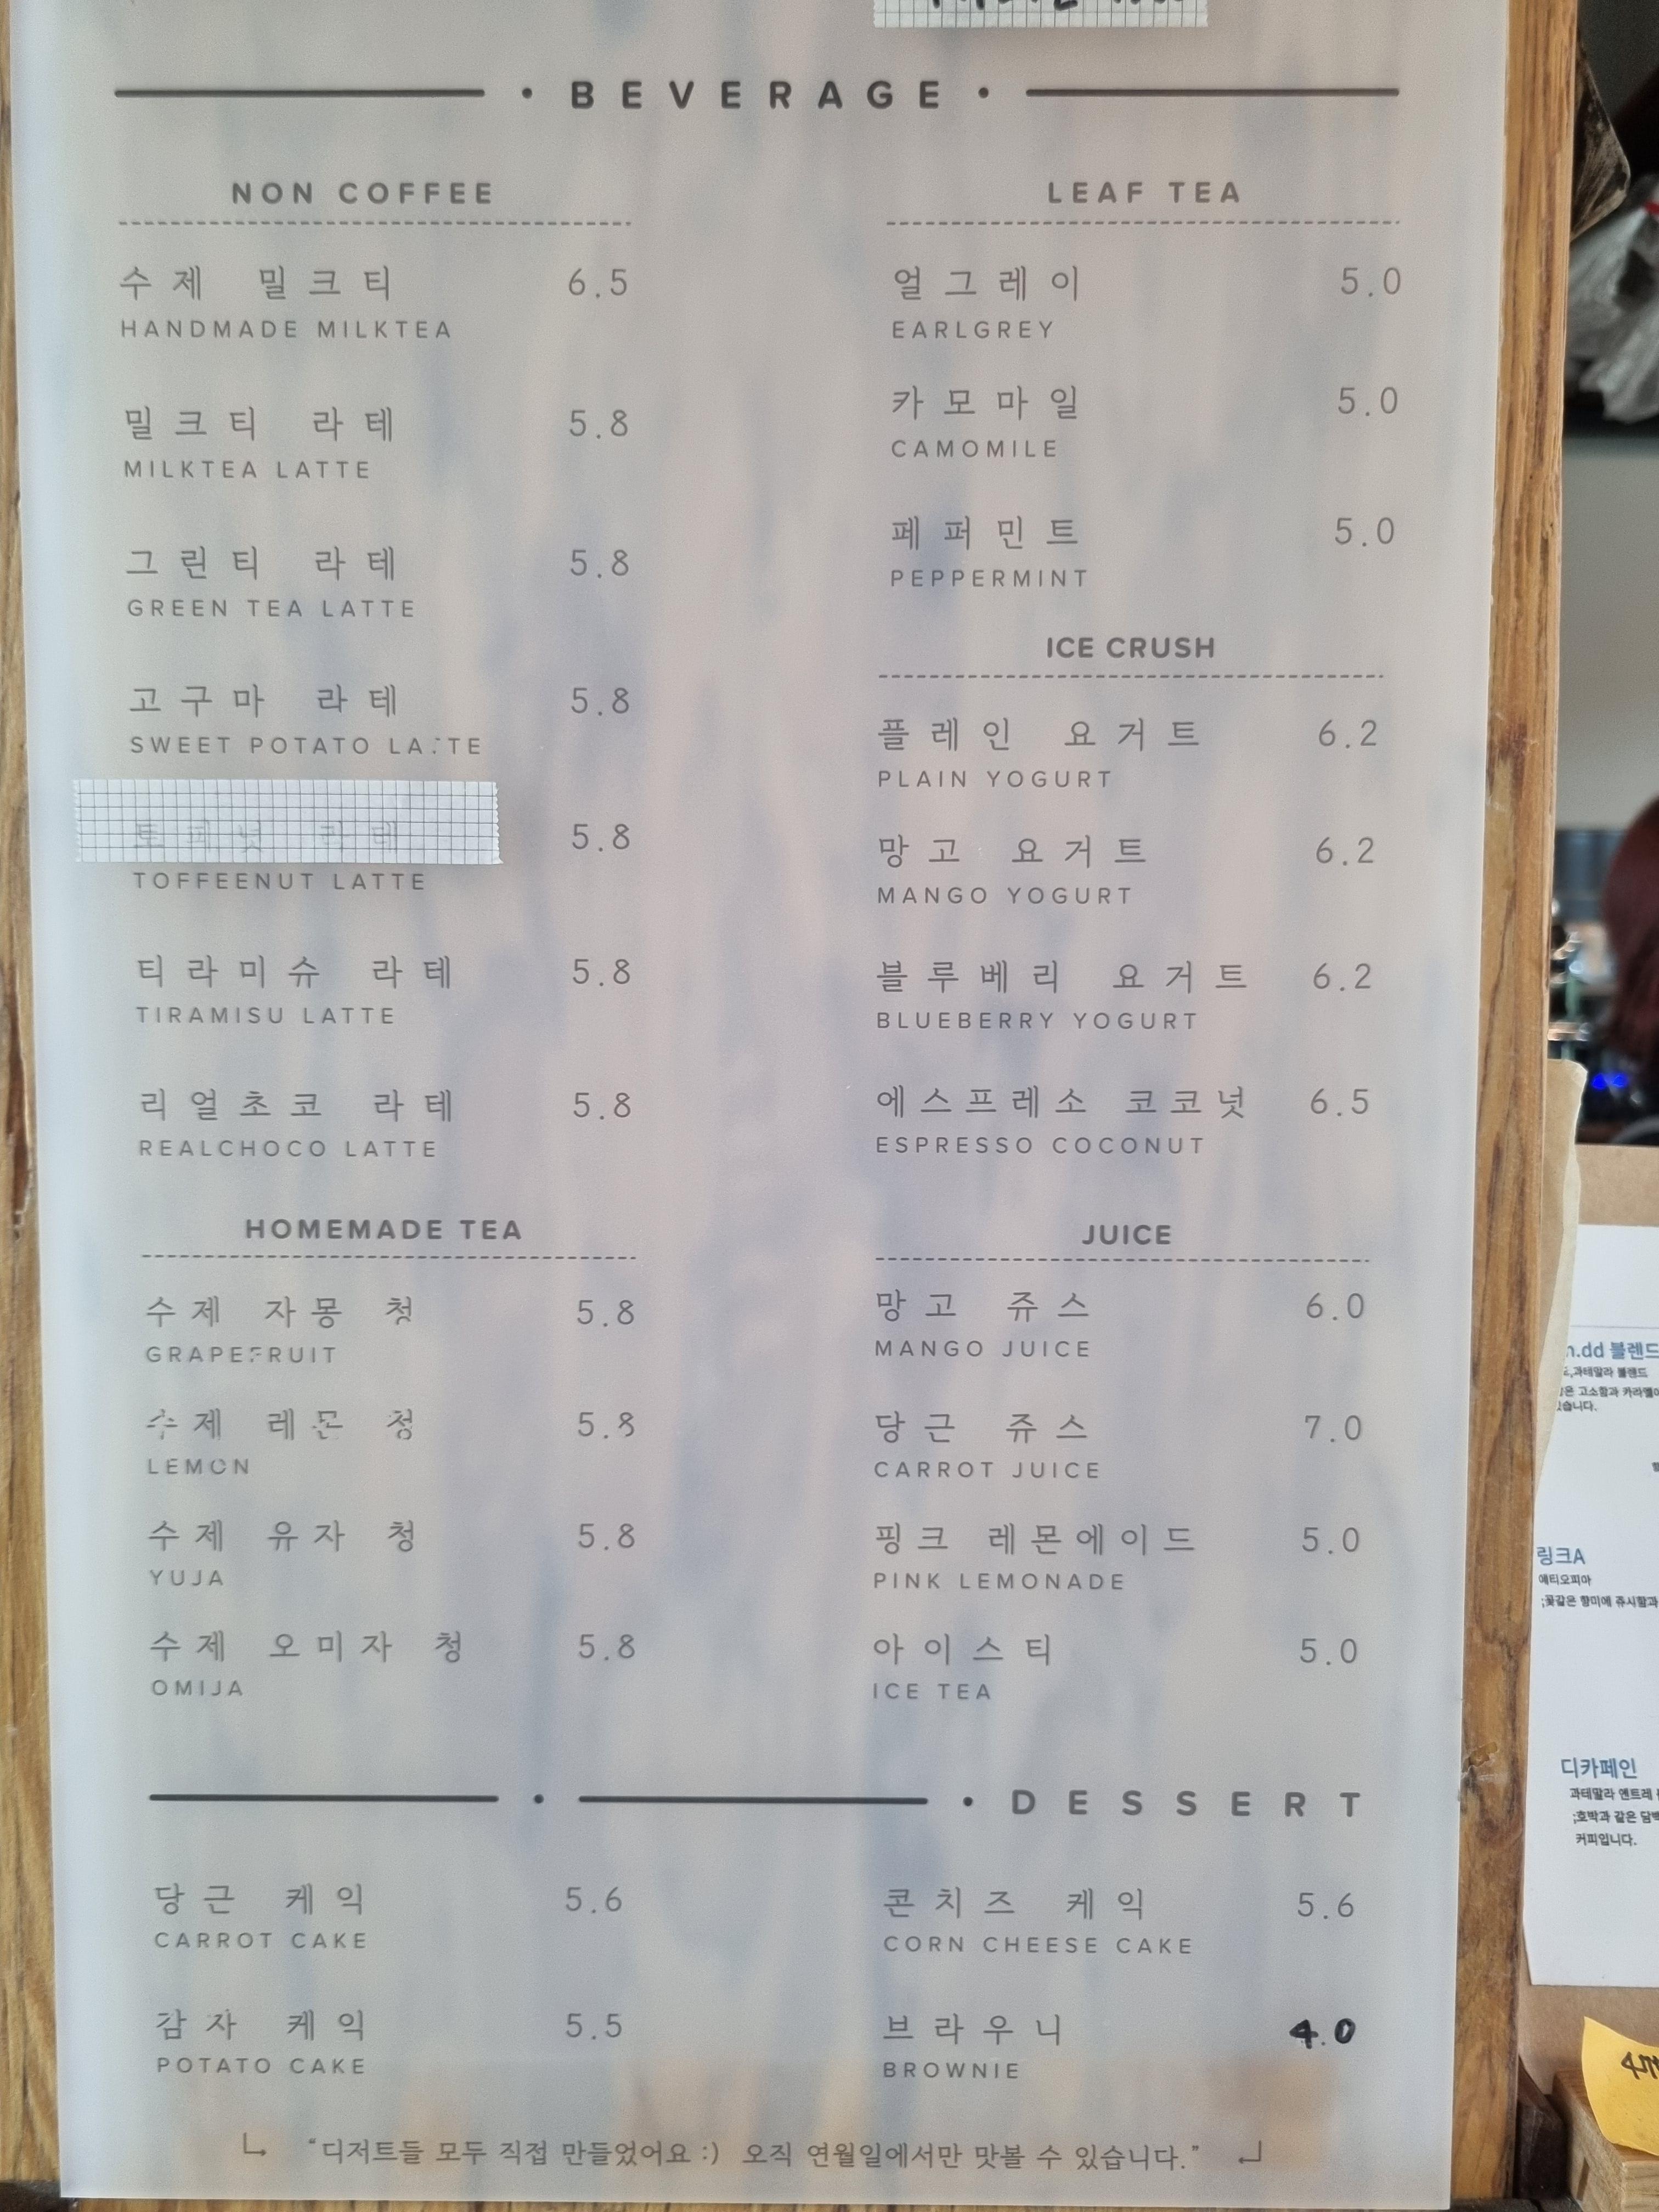 • BEVERAGE •
NON COFFEE
수제 밀크티 6.5
HANDMADE MILKTEA
밀크티 라테 5.8
MILKTEA LATTE
그린티 라테 5.8
GREEN TEA LATTE
고구마 라테 5.8
SWEET POTATO LATTE
토피넛 라테 5.8
TOFFEENUT LATTE
티라미슈 라테 5.8
TIRAMISU LATTE
리얼초코 라테 5.8
REALCHOCO LATTE
HOMEMADE TEA
수제 자몽 청 5.8
GRAPEFRUIT
수제 레몬 청 5.8
LEMON
수제 유자 청 5.8
YUJA
수제 오미자 청 5.8
OMIJA
LEAF TEA
얼그레이 5.0
EARLGREY
카모마일 5.0
CAMOMILE
페퍼민트 5.0
PEPPERMINT
ICE CRUSH
플레인 요거트 6.2
PLAIN YOGURT
망고 요거트 6.2
MANGO YOGURT
블루베리 요거트 6.2
BLUEBERRY YOGURT
에스프레소 코코넛 6.5
ESPRESSO COCONUT
JUICE
망고 쥬스 6.0
MANGO JUICE
당근 쥬스 7.0
CARROT JUICE
핑크 레몬에이드 5.0
PINK LEMONADE
아이스티 5.0
ICE TEA
• • DESSERT
당근 케익 5.6
CARROT CAKE
감자 케익 5.5
POTATO CAKE
콘치즈 케익 5.6
CORN CHEESE CAKE
브라우니 4.0
BROWNIE
"디저트들 모두 직접 만들었어요 :) 오직 연월일에서만 맛볼 수 있습니다."
n.dd 블렌드
과테말라 블렌드
고소함과
있습니다.
링크A
에티오피아
;꽃같은 향미에 쥬시함과
디카페인
과테말라 엔트레
;호박과 같은 담백
커피입니다.